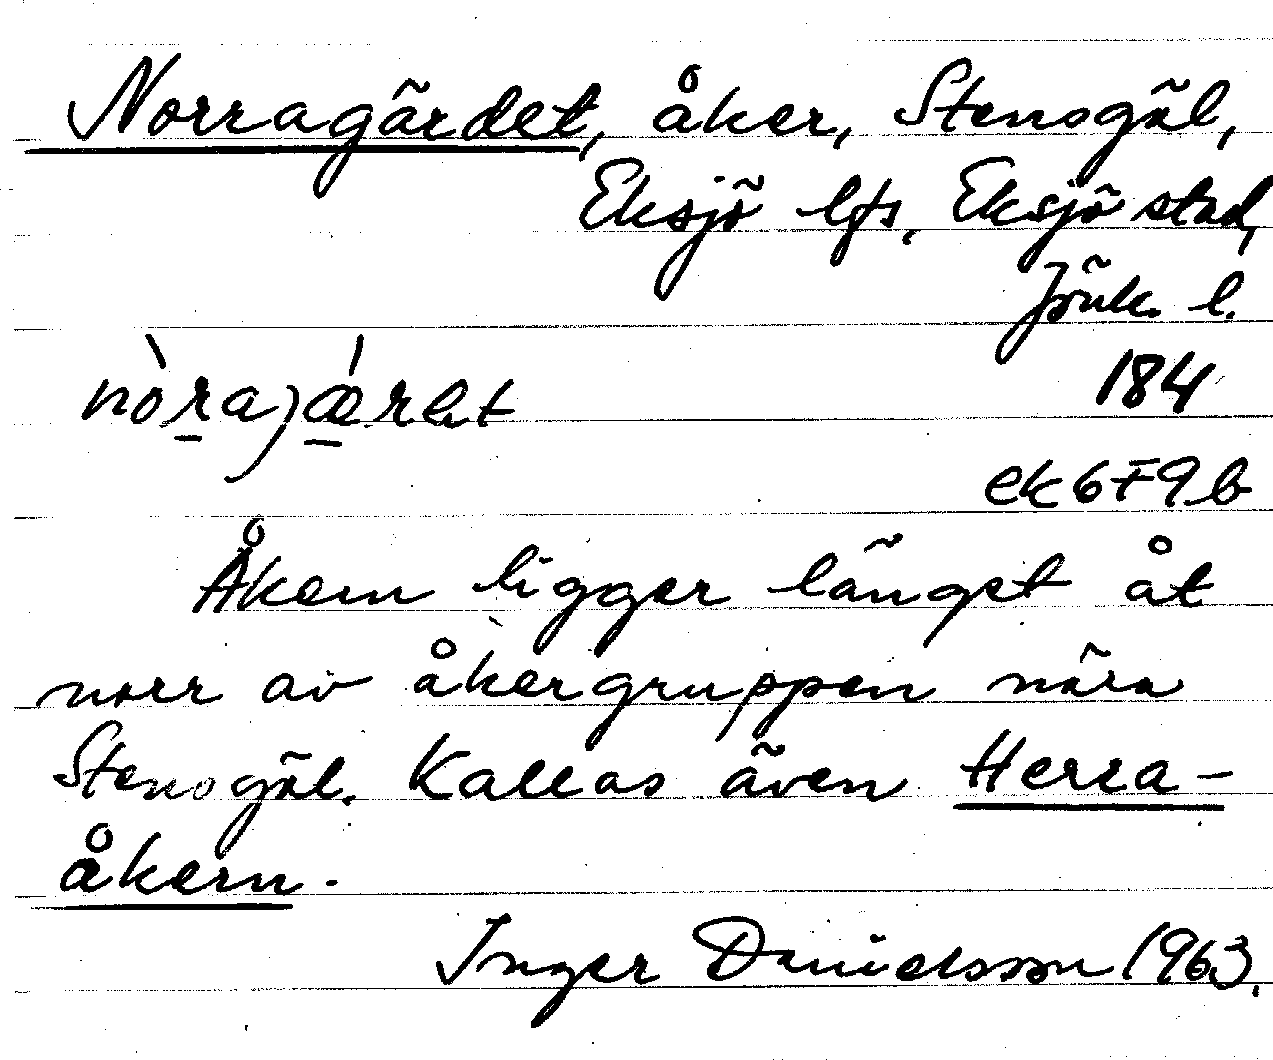 Norragärdet, åker, Stensgöl,
Eksjö lfs, Eksjö stad,
Jönk. l.
nòrajǽrlet
184
ek 6F9b
Åkern ligger längst åt
norr av åkergruppen nära
Stensgöl. Kallas även Herra-
åkern.
Inger Danielsson 1963.